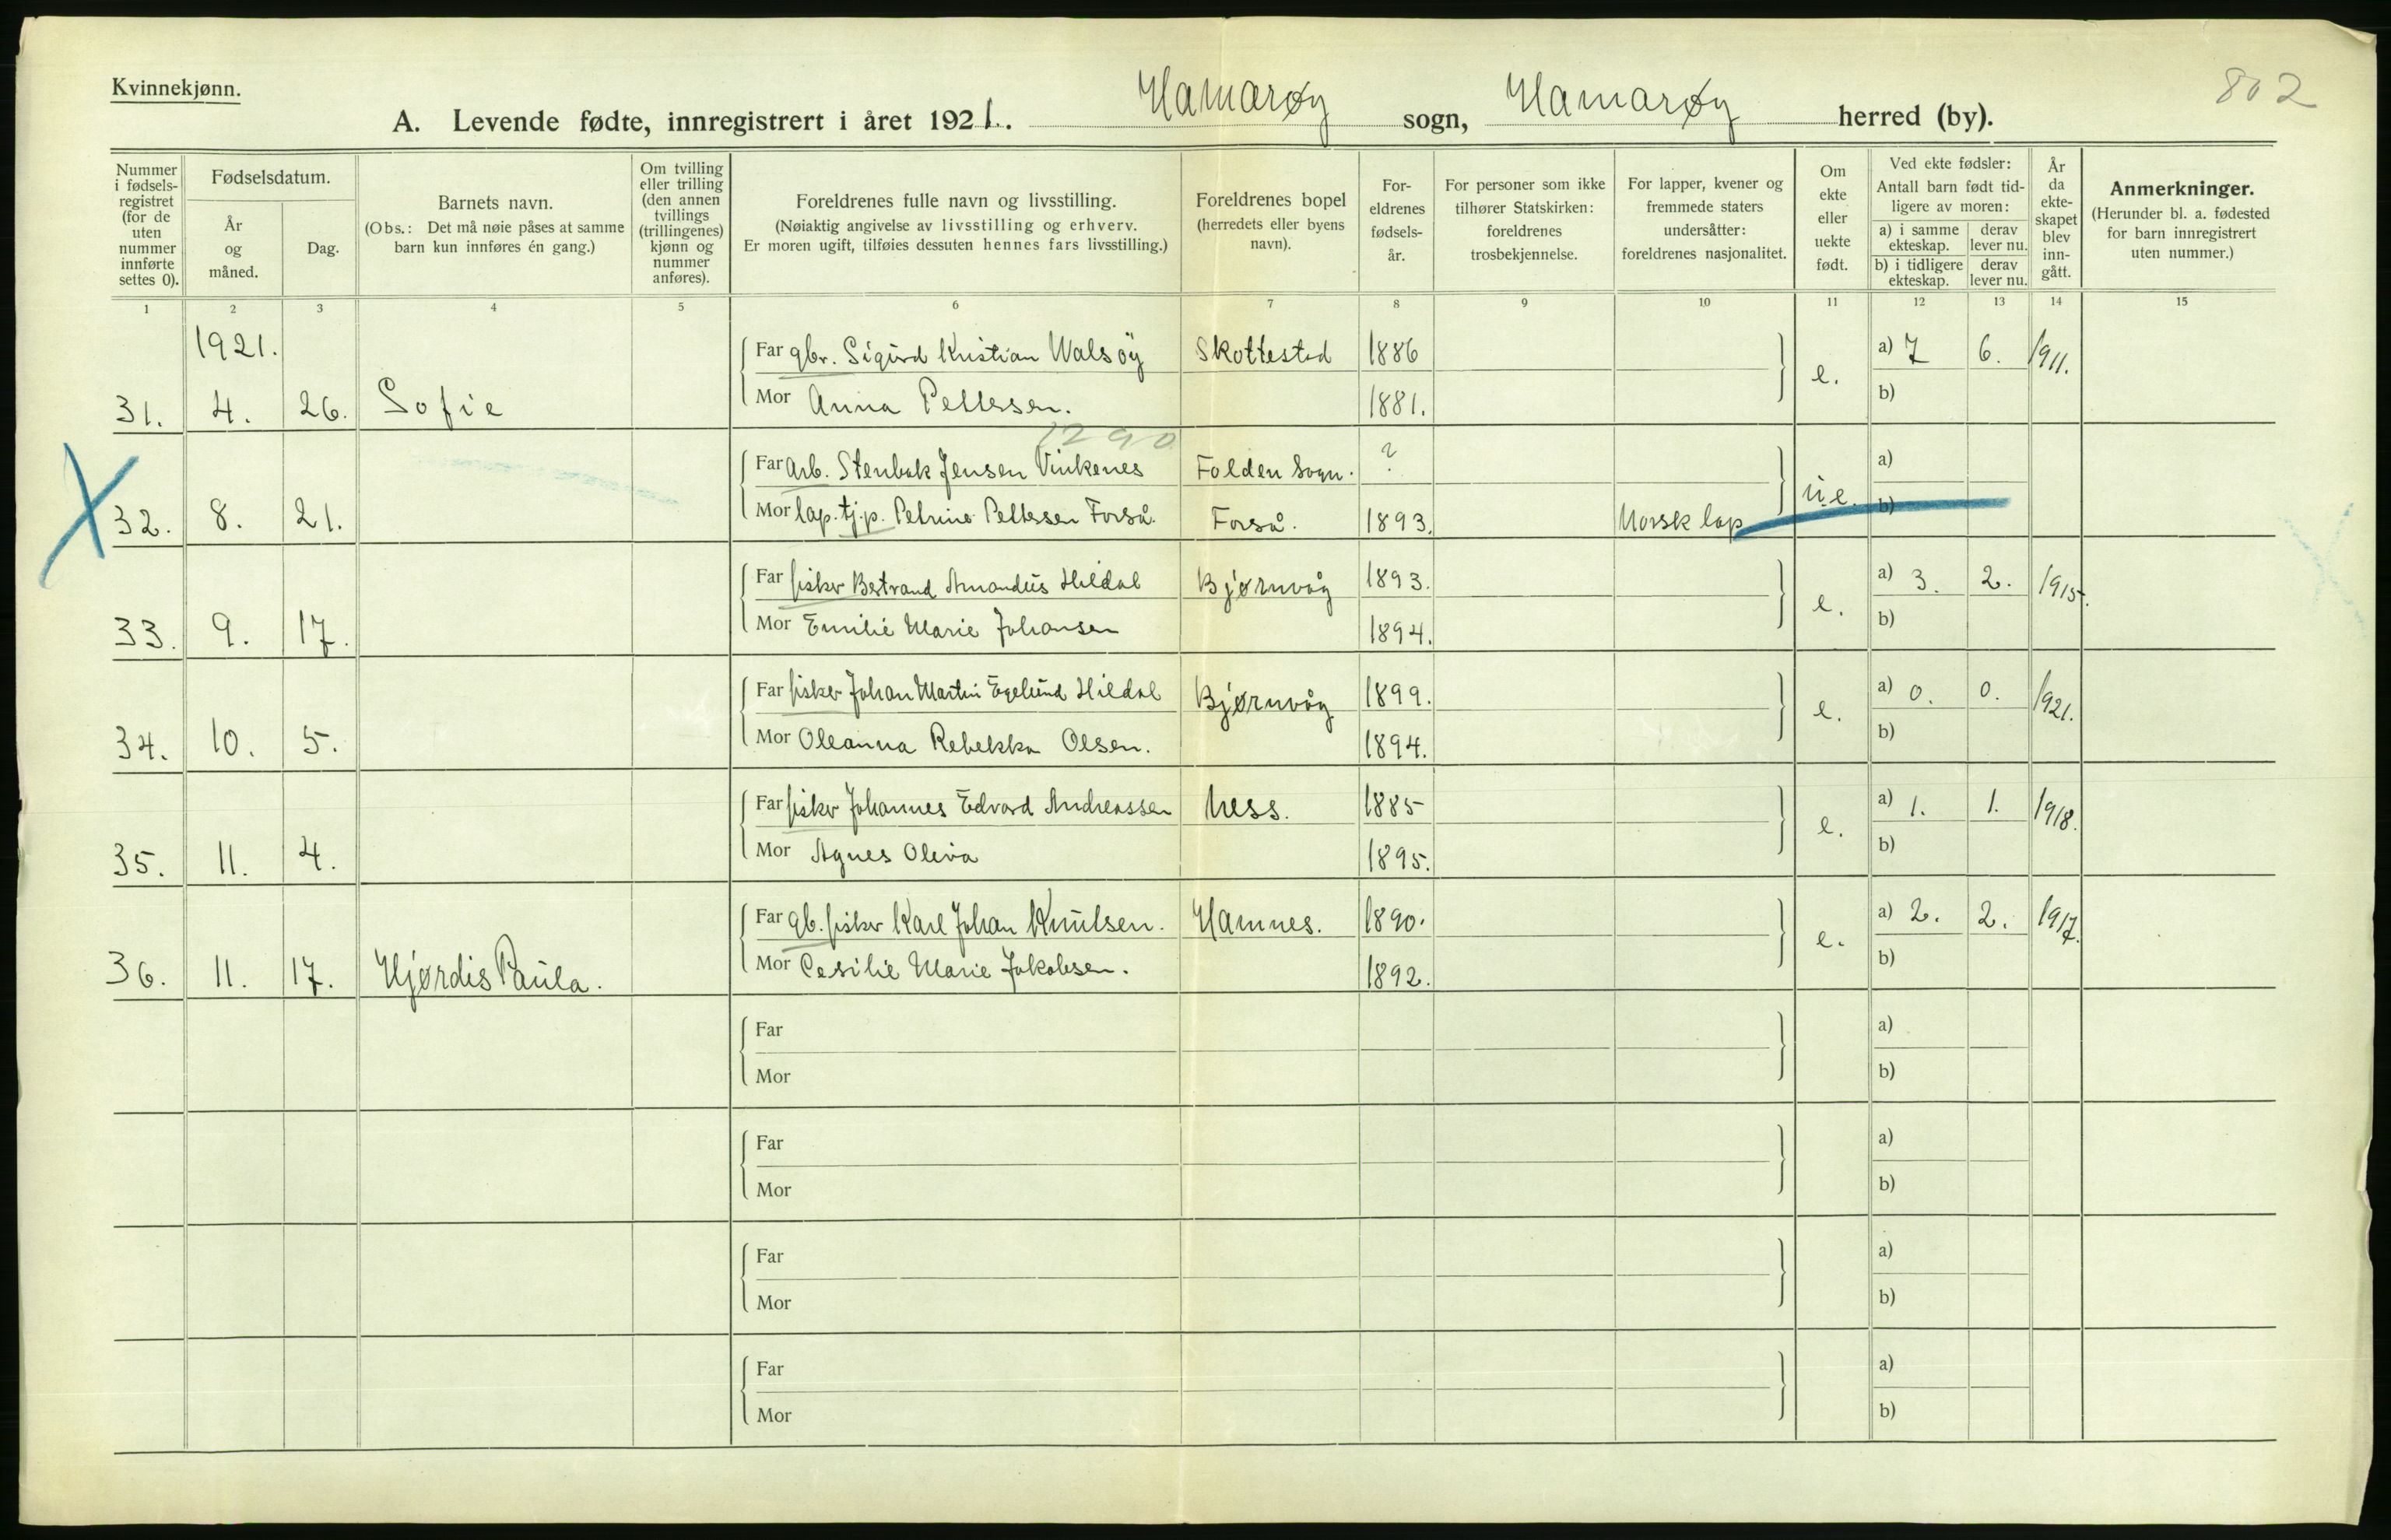 Kvinnekjønn.
802
A. Levende fødte, innregistrert i året 1921. Hamarøy sogn, Hamarøy herred (by).
Nummer i fødselsregistret (for de uten nummer innførte settes 0).
Fødselsdatum.
År og måned.
Dag.
Barnets navn.
(Obs.: Det må nøie påses at samme barn kun innføres én gang.)
Om tvilling eller trilling (den annen tvillings (trillingenes) kjønn og nummer anføres).
Foreldrenes fulle navn og livsstilling.
(Nøiaktig angivelse av livsstilling og erhverv.
Er moren ugift, tilføies dessuten hennes fars livsstilling.)
Foreldrenes bopel
(herredets eller byens navn).
Foreldrenes fødselsår.
For personer som ikke tilhører Statskirken: foreldrenes trosbekjennelse.
For lapper, kvener og fremmede staters undersåtter: foreldrenes nasjonalitet.
Om ekte eller uekte født.
Ved ekte fødsler:
Antall barn født tidligere av moren:
a) i samme ekteskap. derav lever nu.
b) i tidligere ekteskap. derav lever nu.
År da ekteskapet blev inngått.
Anmerkninger.
(Herunder bl. a. fødested for barn innregistrert uten nummer.)
1 2 3 4 5 6 7 8 9 10 11 12 13 14 15
1921.
Far gbr. Sigurd Kristian Walsöy Skottestad 1886 a) 7 6. 1911.
31. 4. 26. Sofie Mor Anna Pettersen. 1881. e. b)
1290
Far arb. Stenbak Jensen Vinkenes Folden Sogn. ? a)
32. 8. 21. Mor lap. tj.p. Petrine Pettersen Forså. Forså. 1893. Norsk lap u.e. b)
Far fisker Bertrand Amandus Hildal Bjørnvåg 1893. a) 3. 2. 1915.
33. 9. 17. Mor Emilie Marie Johansen 1894. e. b)
Far fisker Johan Martin Egelund Hildal Bjørnvåg 1899. a) 0. 0. 1921.
34. 10. 5. Mor Oleanna Rebekka Olsen. 1894. e. b)
Far fisker Johannes Edvard Andreassen Ness. 1885 a) 1. 1. 1918.
35. 11. 4. Mor Agnes Oliva 1895. e. b)
Far gb. fisker Karl Johan Knutsen. Hamnes. 1890. a) 2. 2. 1917.
36. 11. 17. Hjørdis Paula. Mor Cesilie Marie Jakobsen. 1892. e. b)
Far a)
Mor b)
Far a)
Mor b)
Far a)
Mor b)
Far a)
Mor b)